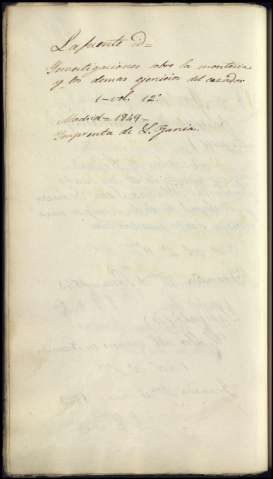 Lafuente id=
Investigaciones sobre la monteria
y los demas ejercicios del cazador
1 - vol. 12º
Madrid = 1849 -
Imprenta de L. Garcia.